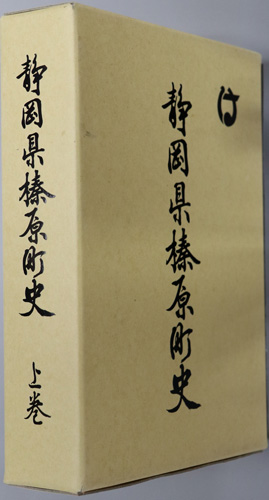 静岡県榛原町史
上巻
静岡県榛原町史